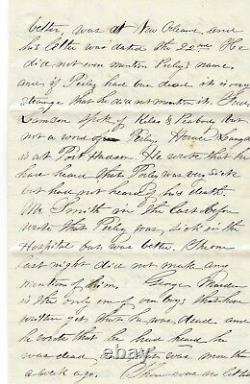 better, was at New Orleans, and
his letter was dated the 22nd He
did not even mention Perley's name,
and if Perley had been dead it is very
strange that he did not mention it. Fred
Lamson spoke of Kelea & Peabody but
not a word of Perley. Horace
is at Port Hudson. He wrote that he
had heard that Perley was very sick
but had not heard of his death.
Mr Smith in the last before
wrote that Perley was, sick in the
Hospital but was better.
last night did not make any
mention of him. George
is the only one of our boys that has
written yet that he was dead and
he wrote that he had heard he
was dead, that was more than
a week ago.